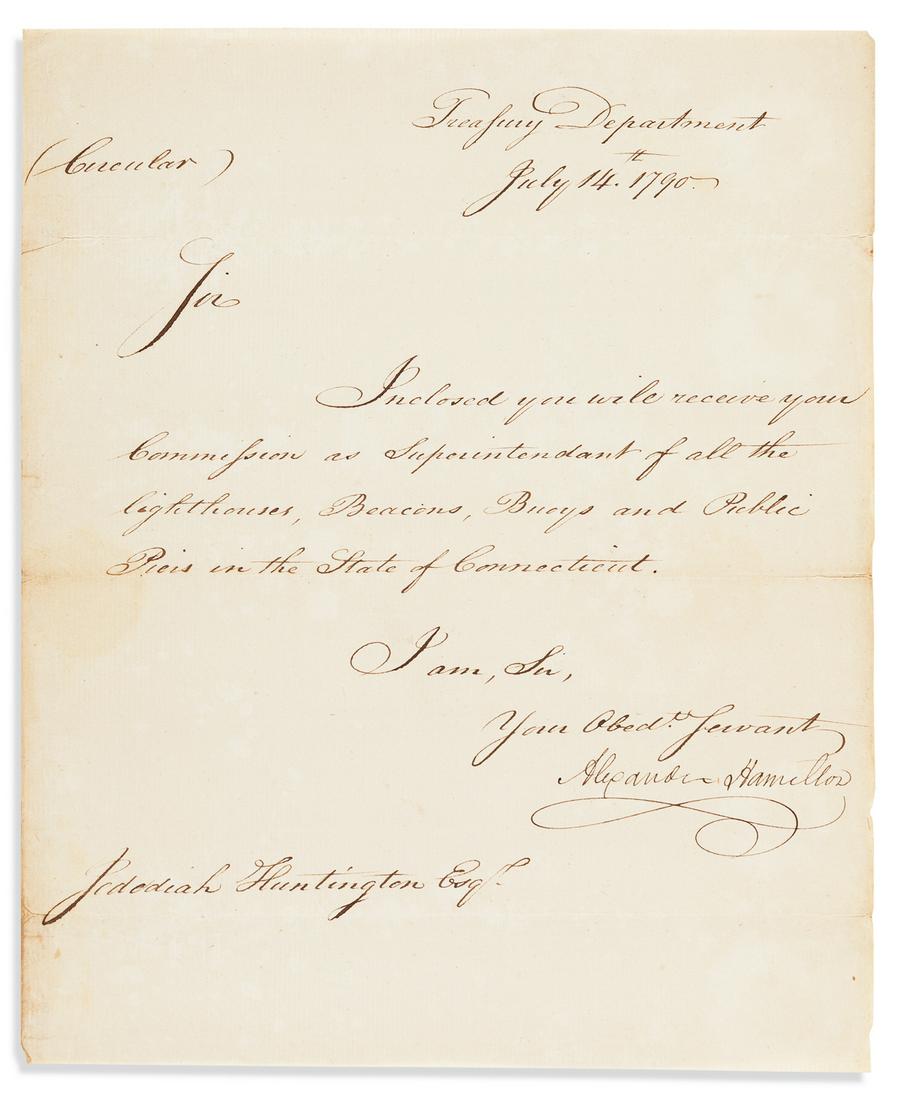 Treasury Department
(Circular)
July 14.th 1790.
Sir
Inclosed you will receive your
Commission as Superintendant of all the
lighthouses, Beacons, Buoys and Public
Piers in the State of Connecticut.
I am, Sir,
Your Obed.t Servant
Alexander Hamilton
Jedediah Huntington Esqr.